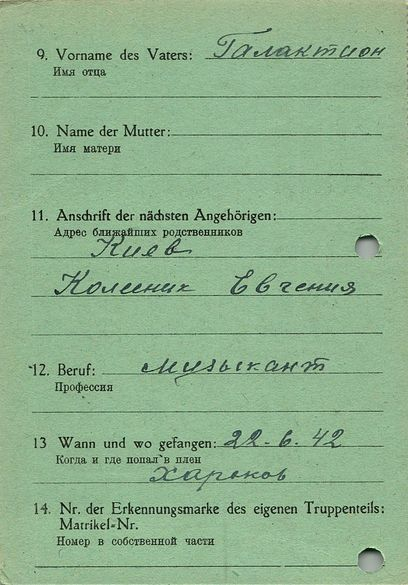 9. Vorname des Vaters: Галактион
Имя отца
10. Name der Mutter:
Имя матери
11. Anschrift der nächsten Angehörigen:
Адрес ближайших родственников
Киев
Колесник Евгения
12. Beruf: музыкант
Профессия
13 Wann und wo gefangen: 22-6.42
Когда и где попал в плен
Харьков
14. Nr. der Erkennungsmarke des eigenen Truppenteils:
Matrikel-Nr.
Номер в собственной части